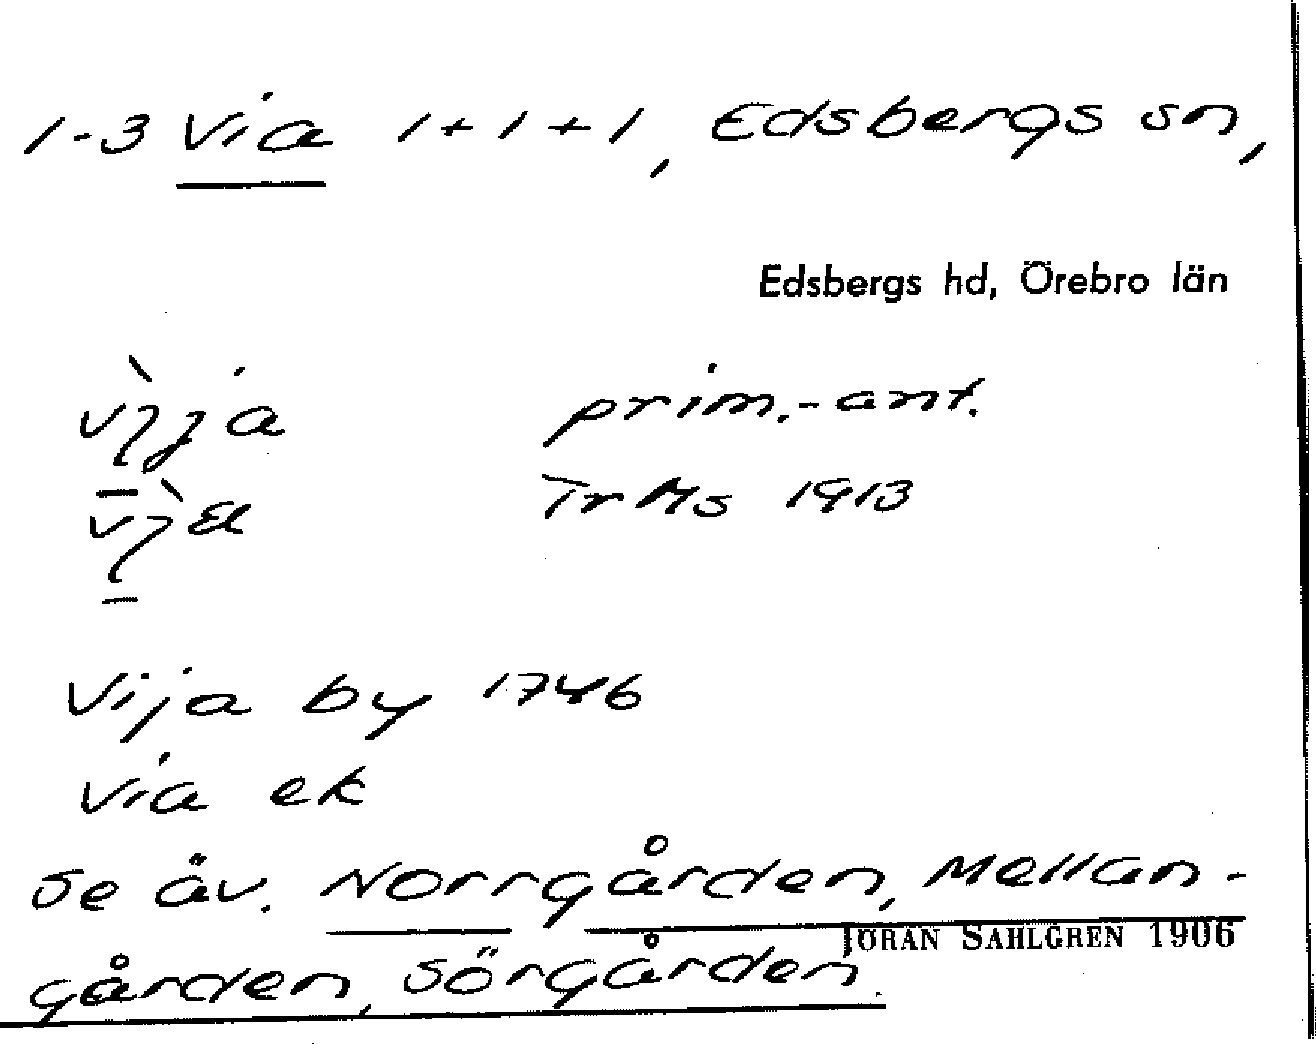 1-3 Via 1+1+1, Edsbergs sn,
Edsbergs hd, Örebro län
prim.-ant.
Tr Ms 1913
Vija by 1746
Via ek
Se äv. Norrgården, Mellan-
gården, Sörgården.
JÖRAN SAHLGREN 1906